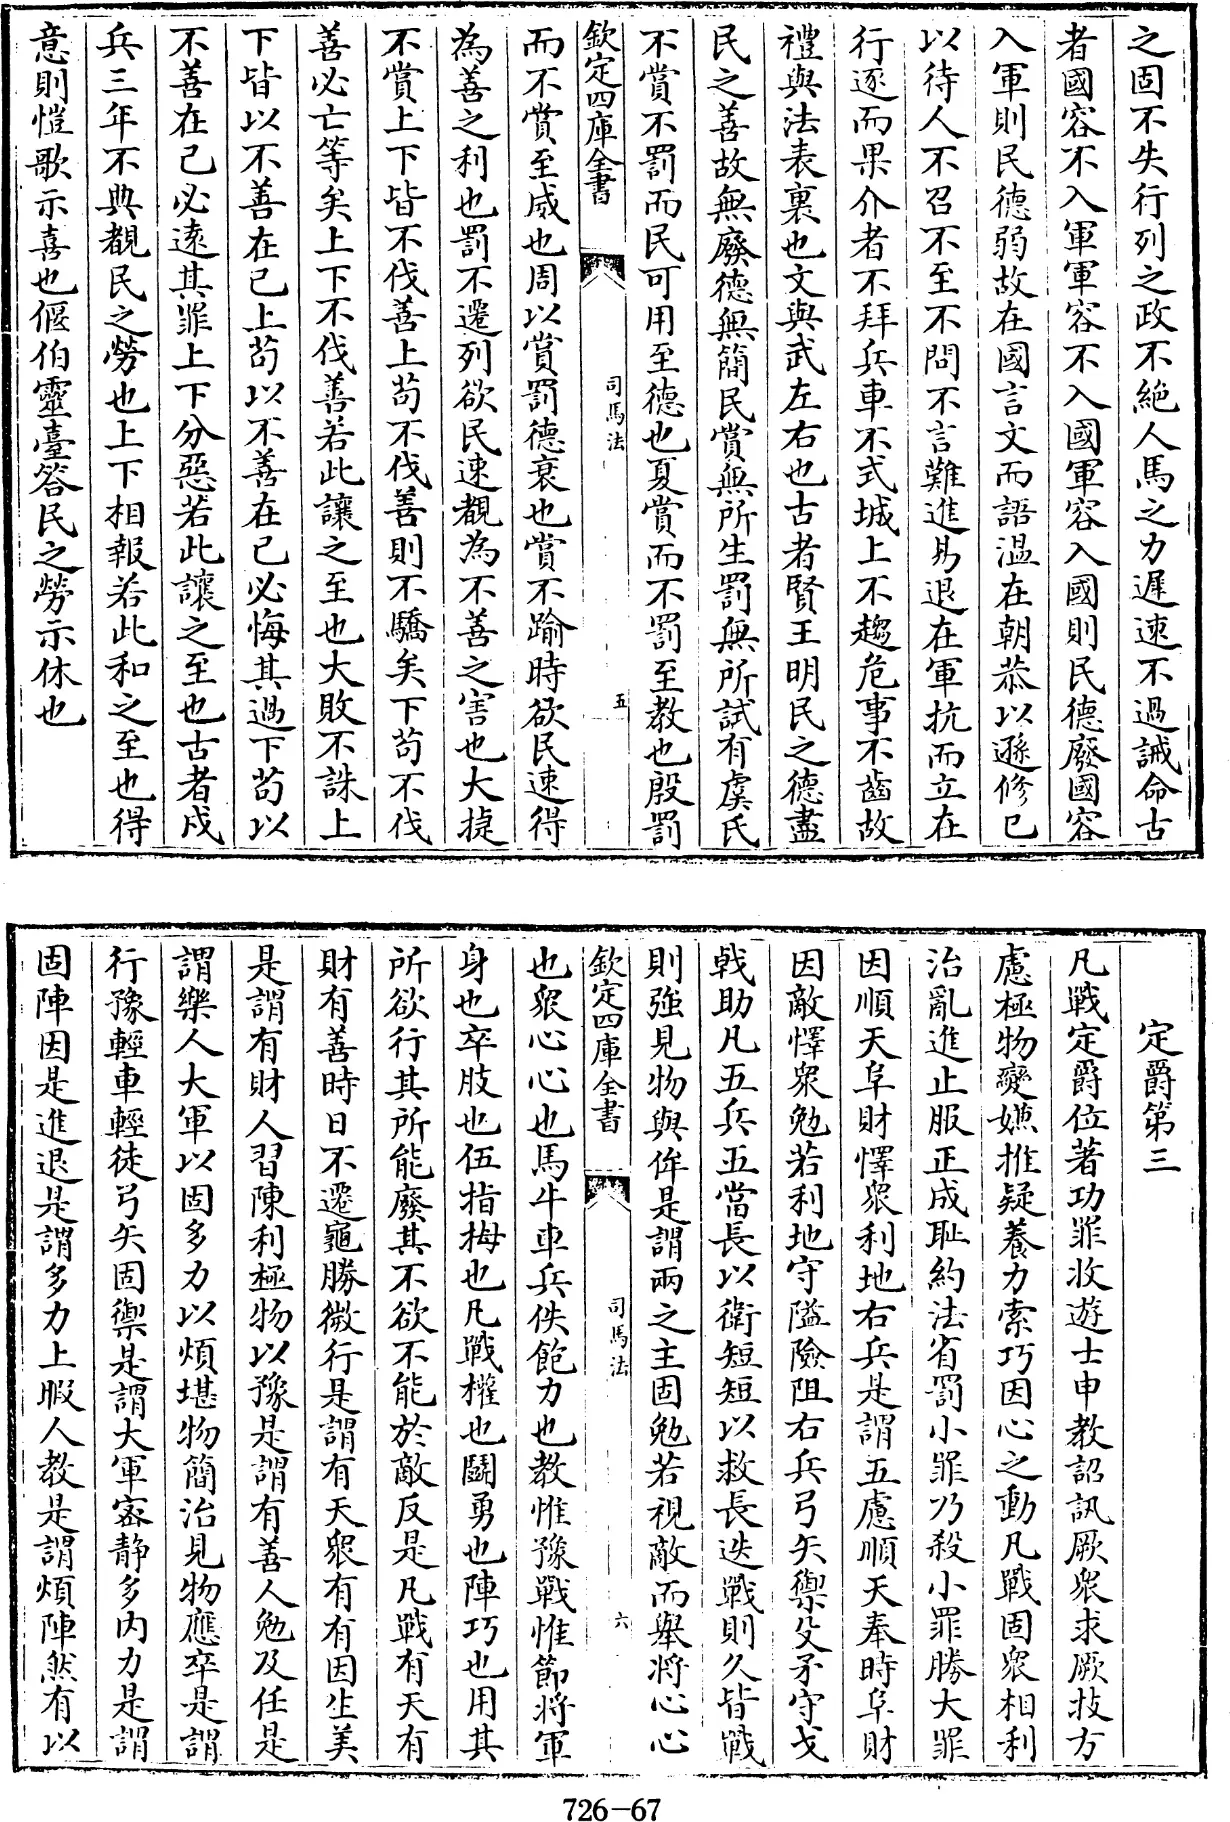 之固不失行列之政不絶人馬之力遲速不過誡命古
者國容不入軍軍容不入國軍容入國則民德廢國容
入軍則民德弱故在國言文而語温在朝恭以遜修已
以待人不召不至不問不言難進易退在軍抗而立在
行逐而果介者不拜兵車不式城上不趨危事不齒故
禮與法表裏也文與武左右也古者賢王明民之德盡
民之善故無廢德無簡民賞無所生罰無所試有虞氏
不賞不罰而民可用至德也夏賞而不罰至教也殷罰
欽定四庫全書
司馬法
五
而不賞至威也周以賞罰德衰也賞不踰時欲民速得
為善之利也罰不遷列欲民速覩為不善之害也大捷
不賞上下皆不伐善上苟不伐善則不驕矣下苟不伐
善必亡等矣上下不伐善若此讓之至也大敗不誅上
下皆以不善在已上苟以不善在已必悔其過下苟以
不善在已必遠其罪上下分惡若此讓之至也古者戍
兵三年不典覩民之勞也上下相報若此和之至也得
意則愷歌示喜也偃伯靈臺答民之勞示休也
定爵第三
凡戰定爵位著功罪收遊士申教詔訊厥衆求厥技方
慮極物變嫌推疑養力索巧因心之動凡戰固衆相利
治亂進止服正成耻約法省罰小罪乃殺小罪勝大罪
因順天阜財懌衆利地右兵是謂五慮順天奉時阜財
因敵懌衆勉若利地守隘險阻右兵弓矢禦殳矛守戈
戟助凡五兵五當長以衛短短以救長迭戰則久皆戰
則強見物與侔是謂兩之主固勉若視敵而舉將心心
欽定四庫全書
司馬法
六
也衆心心也馬牛車兵佚飽力也教惟豫戰惟節將軍
身也卒肢也伍指拇也凡戰權也鬭勇也陣巧也用其
所欲行其所能廢其不欲不能於敵反是凡戰有天有
財有善時日不遷龜勝微行是謂有天衆有有因生美
是謂有財人習陳利極物以豫是謂有善人勉及任是
謂樂人大軍以固多力以煩堪物簡治見物應卒是謂
行豫輕車輕徒弓矢固禦是謂大軍密静多内力是謂
固陣因是進退是謂多力上暇人教是謂煩陣然有以
726-67